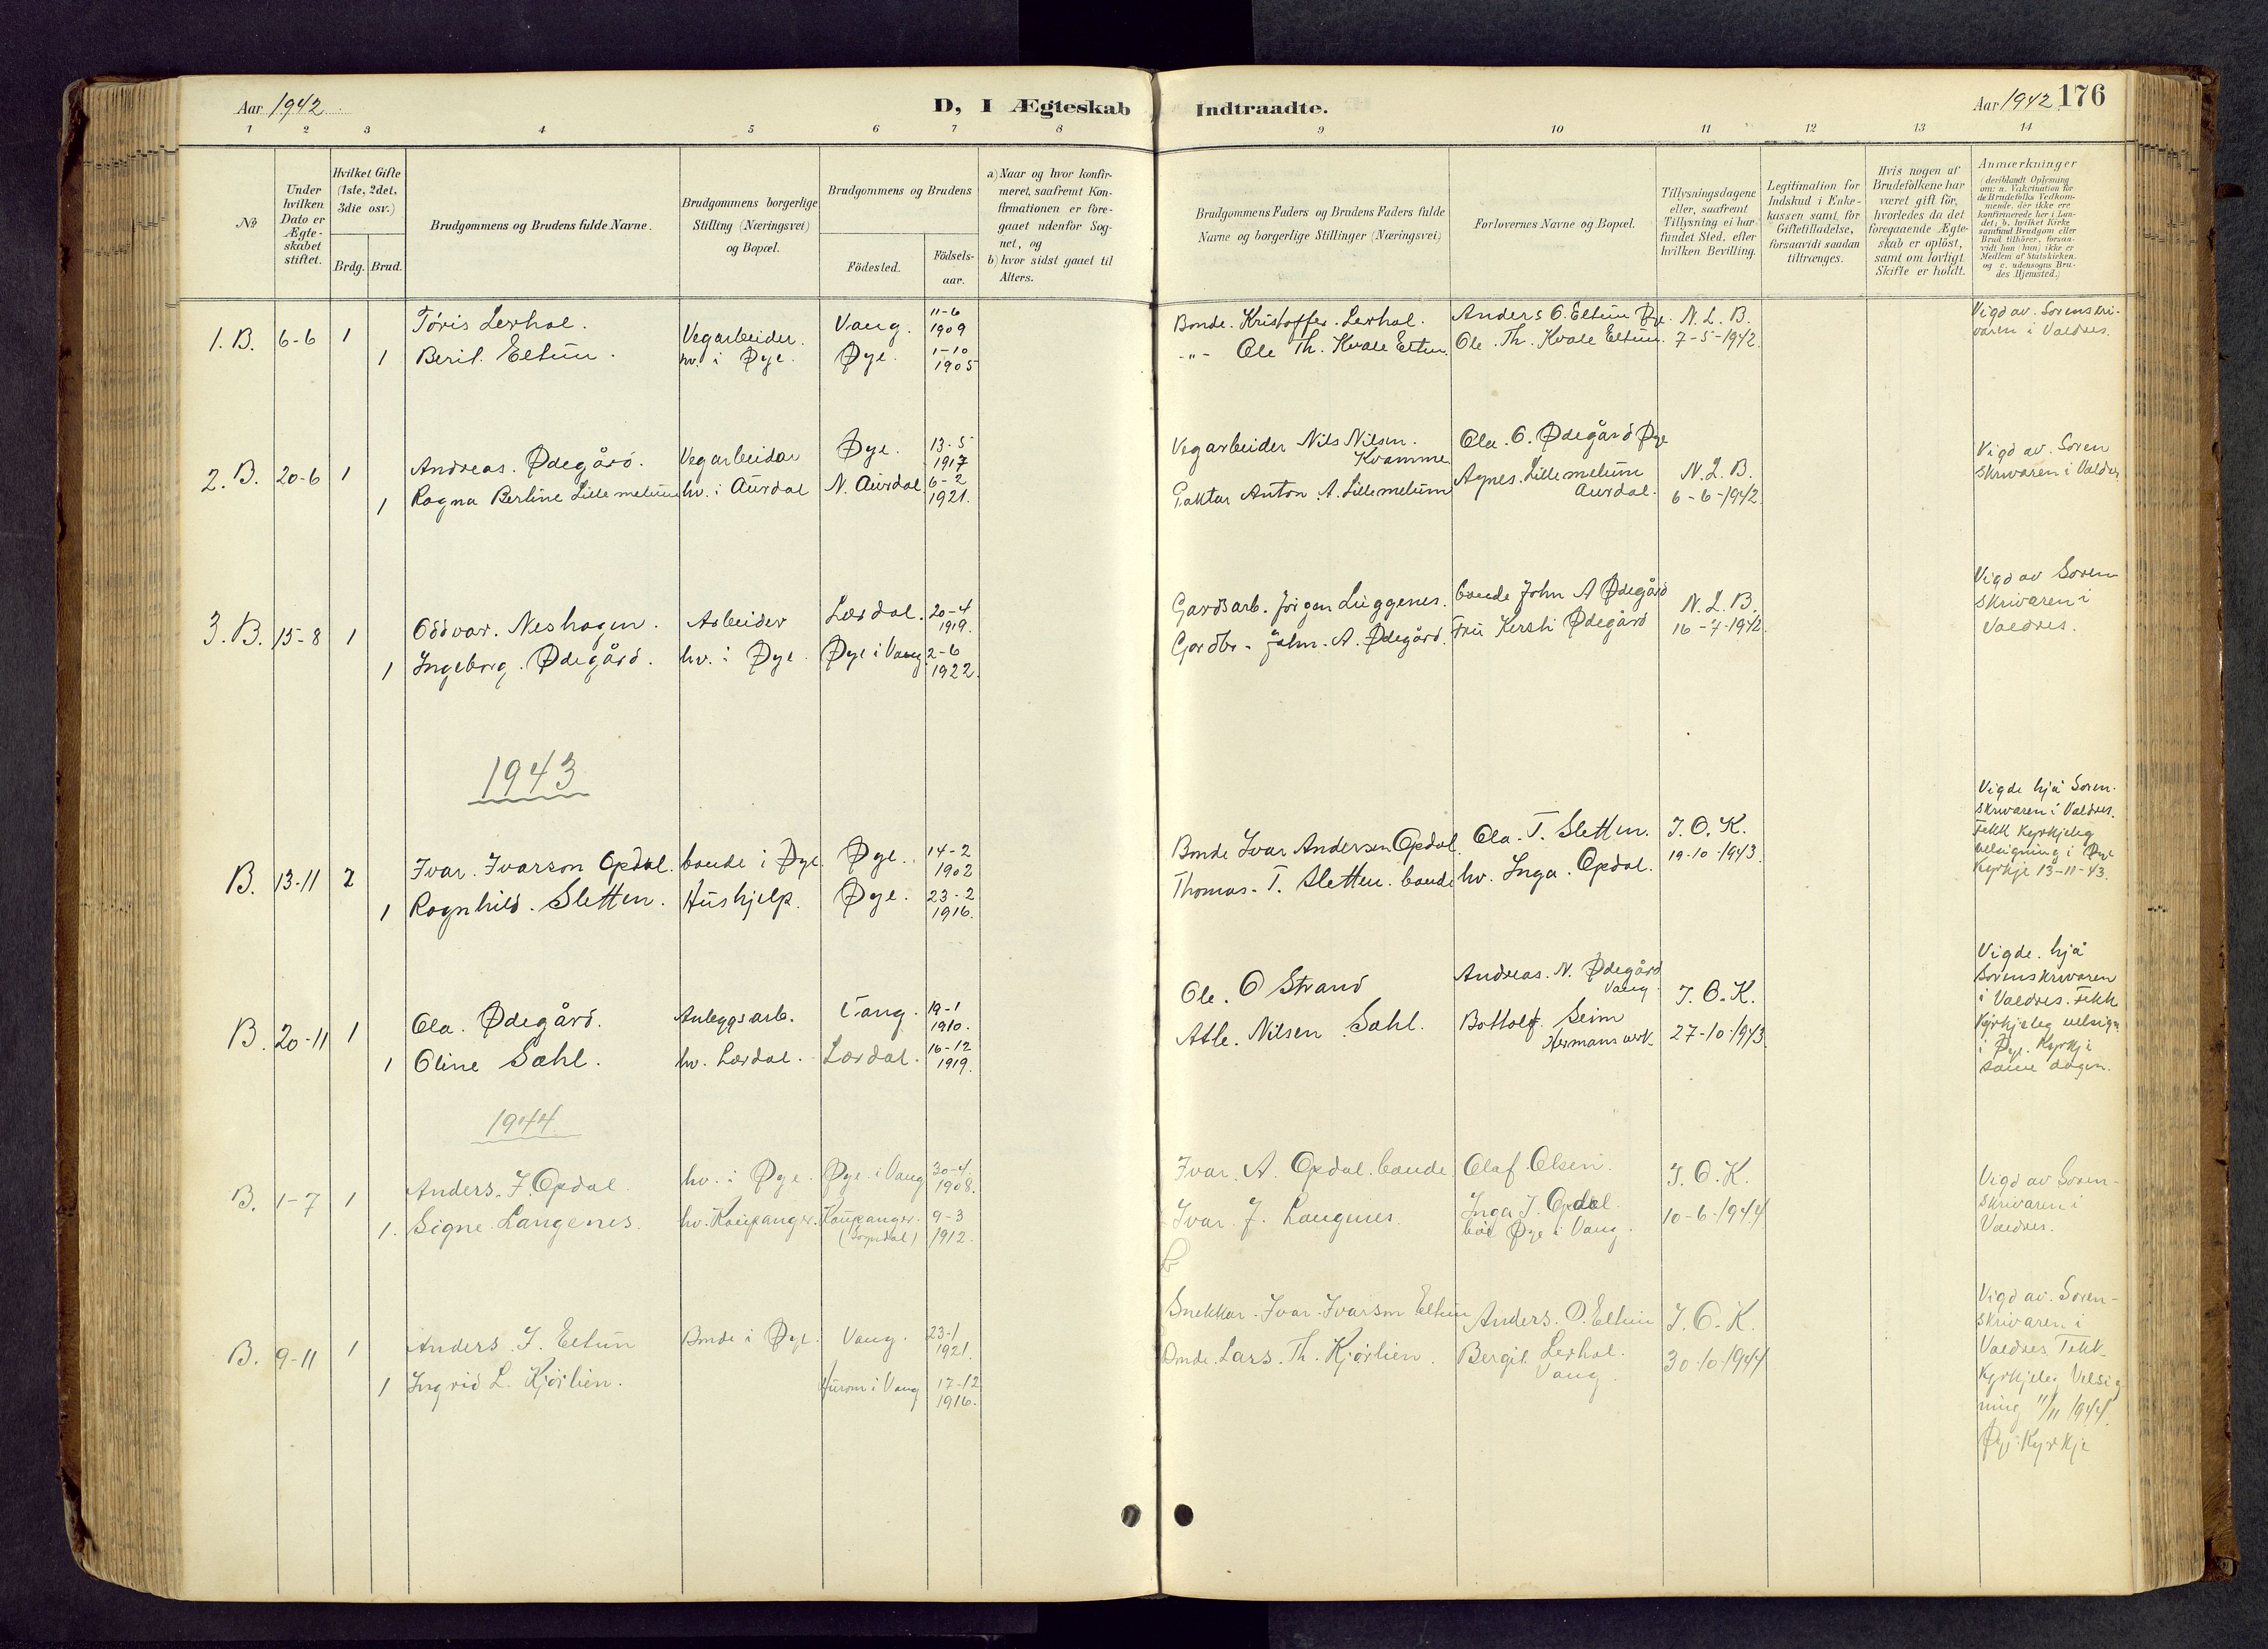 Aar 1942
D, I Ægteskab
Indtraadte.
Aar 1942 176
1 2 3 4 5 6 7 8 9 10 11 12 13 14
№
Under hvilken Dato er Ægteskabet stiftet.
Hvilket Gifte (1ste, 2det, 3die osv.)
Brdg. Brud.
Brudgommens og Brudens fulde Navne.
Brudgommens borgerlige Stilling (Næringsvei) og Bopæl.
Brudgommens og Brudens
Födested.
Födselsaar.
a) Naar og hvor konfirmeret, saafremt Konfirmationen er foregaaet udenfor Sognet, og
b) hvor sidst gaaet til Alters.
Brudgommens Faders og Brudens Faders fulde Navne og borgerlige Stillinger (Næringsvei)
Forlovernes Navne og Bopæl.
Tillysningsdagene eller, saafremt Tillysning ei har fundet Sted, efter hvilken Bevilling.
Legitimation for Indskud i Enkekassen samt, for Giftetilladelse, forsaavidt saadan tiltrænges.
Hvis nogen af Brudefolkene har været gift för, hvorledes da det foregaaende Ægteskab er oplöst, samt om lovligt Skifte er holdt.
Anmærkninger (deriblandt Oplysning om: a. Vakcination for de Brudefolks Vedkommende, der ikke ere konfirmerede her i Landet, b. hvilket Kirkesamfund Brudgom eller Brud tilhører, forsaavidt han (hun) ikke er Medlem af Statskirken, og c. udensogns Brudes Hjemsted.)
1. B. 6-6 1 Tóris Lerhol. Vegarbeider. Vang. 11-6 1909 Bonde. Kristoffer. Lerhol. Anders O. Eltun Øye. N. L. B. Vigd av. Sorenskrivaren i Valdres.
1 Berit. Eltun. hv. i Øye. Øye. 1-10 1905 -"- Ole Th. Kvale Eltun. Ole. Th. Kvale Eltun. 7-5-1942.
2. B. 20-6 1 Andreas. Ødegård. Vegarbeidar Øye. 13-5 1917 Vegarbeider Nils Nilsen. Kvamme Ola. O. Ødegård Øye Vigd av. Soren skrivaren i Valdres
1 Ragna Berline Lillemelum hv. i Aurdal N. Aurdal 6-2 1921. Faktar Anton A. Lillemelum Agnes. Lillemelum Aurdal. N. L. B. 6-6-1942.
3. B. 15-8 1 Oddvar. Neshagen. Arbeider Lærdal. 20-4 1919. Gardsarb. Jörgen Luggenes. bonde John A Ødegård N. L. B. Vigd av Soren skrivaren i Valdres.
1 Ingeborg. Ødegård. hv. i Øye. Øye i Vang. 2-6 1922. Gardbr. John. A. Ødegård. Fru Kersti Ødegård 16-7-1942.
1943
B. 13-11 2 Ivar. Ivarson Opdal. bonde i Øye. Øye. 14-2 1902 Bonde Ivar Andersen Opdal. Ola. T. Sletten. J. O. K. Vigde hjå Soren-
skrivaren i Valdres.
Fekk kyrkjeleg
velsigning i Øye
Kyrkje 13-11-43.
1 Ragnhild. Sletten. Hushjelp. Øye. 23-2 1916. Thomas. T. Sletten. bonde hv. Inga. Opdal. 19-10-1943.
B. 20-11 1 Ola. Ødegård. Anleggsarb. Vang. 19-1 1910. Ole. O Strand Andreas. N. Ødegård Vang. J. O. K. Vigde. hjå
Sorenskrivaren
i Valdres. Fekk
Kyrkjeleg velsign.
i Øye. Kyrkje
same dagen.
1 Oline Sahl. hv. Lærdal. Lærdal. 16-12 1919. Atle. Nilsen Sahl. Bottolf. Seim Hermansverk. 27-10-1943.
1944
B. 1-7 1 Anders. I. Opdal. hv. i Øye. Øye i Vang 30-4. 1908. Ivar. A. Opdal. bonde Olaf Olsen. J. O. K. Vigd av Soren-
skrivaren i
Valdres.
1. Signe. Langenes. hv. Kaupanger. Kaupanger. (Sogndal) 9-3 1912. Ivar. J. Langenes. Inga I. Opdal. Øye i Vang. 10-6-1944
B. 9-11 1 Anders. I. Eltun Bonde i Øye. Vang. 23-1 1921. Snekkar. Ivar. Ivarson Eltun Anders. O. Eltun J. O. K. Vigd av. Soren-
skrivaren i
Valdres. Fekk
Kyrkjeleg Velsig
ning 11/11 1944.
Øye. Kyrkje
1 Ingrid L. Kjörlien. Hurom i Vang 17-12 1916. Bonde. Lars. Th. Kjörlien. Bergit. Lerhol. Vang. 30-10-1944